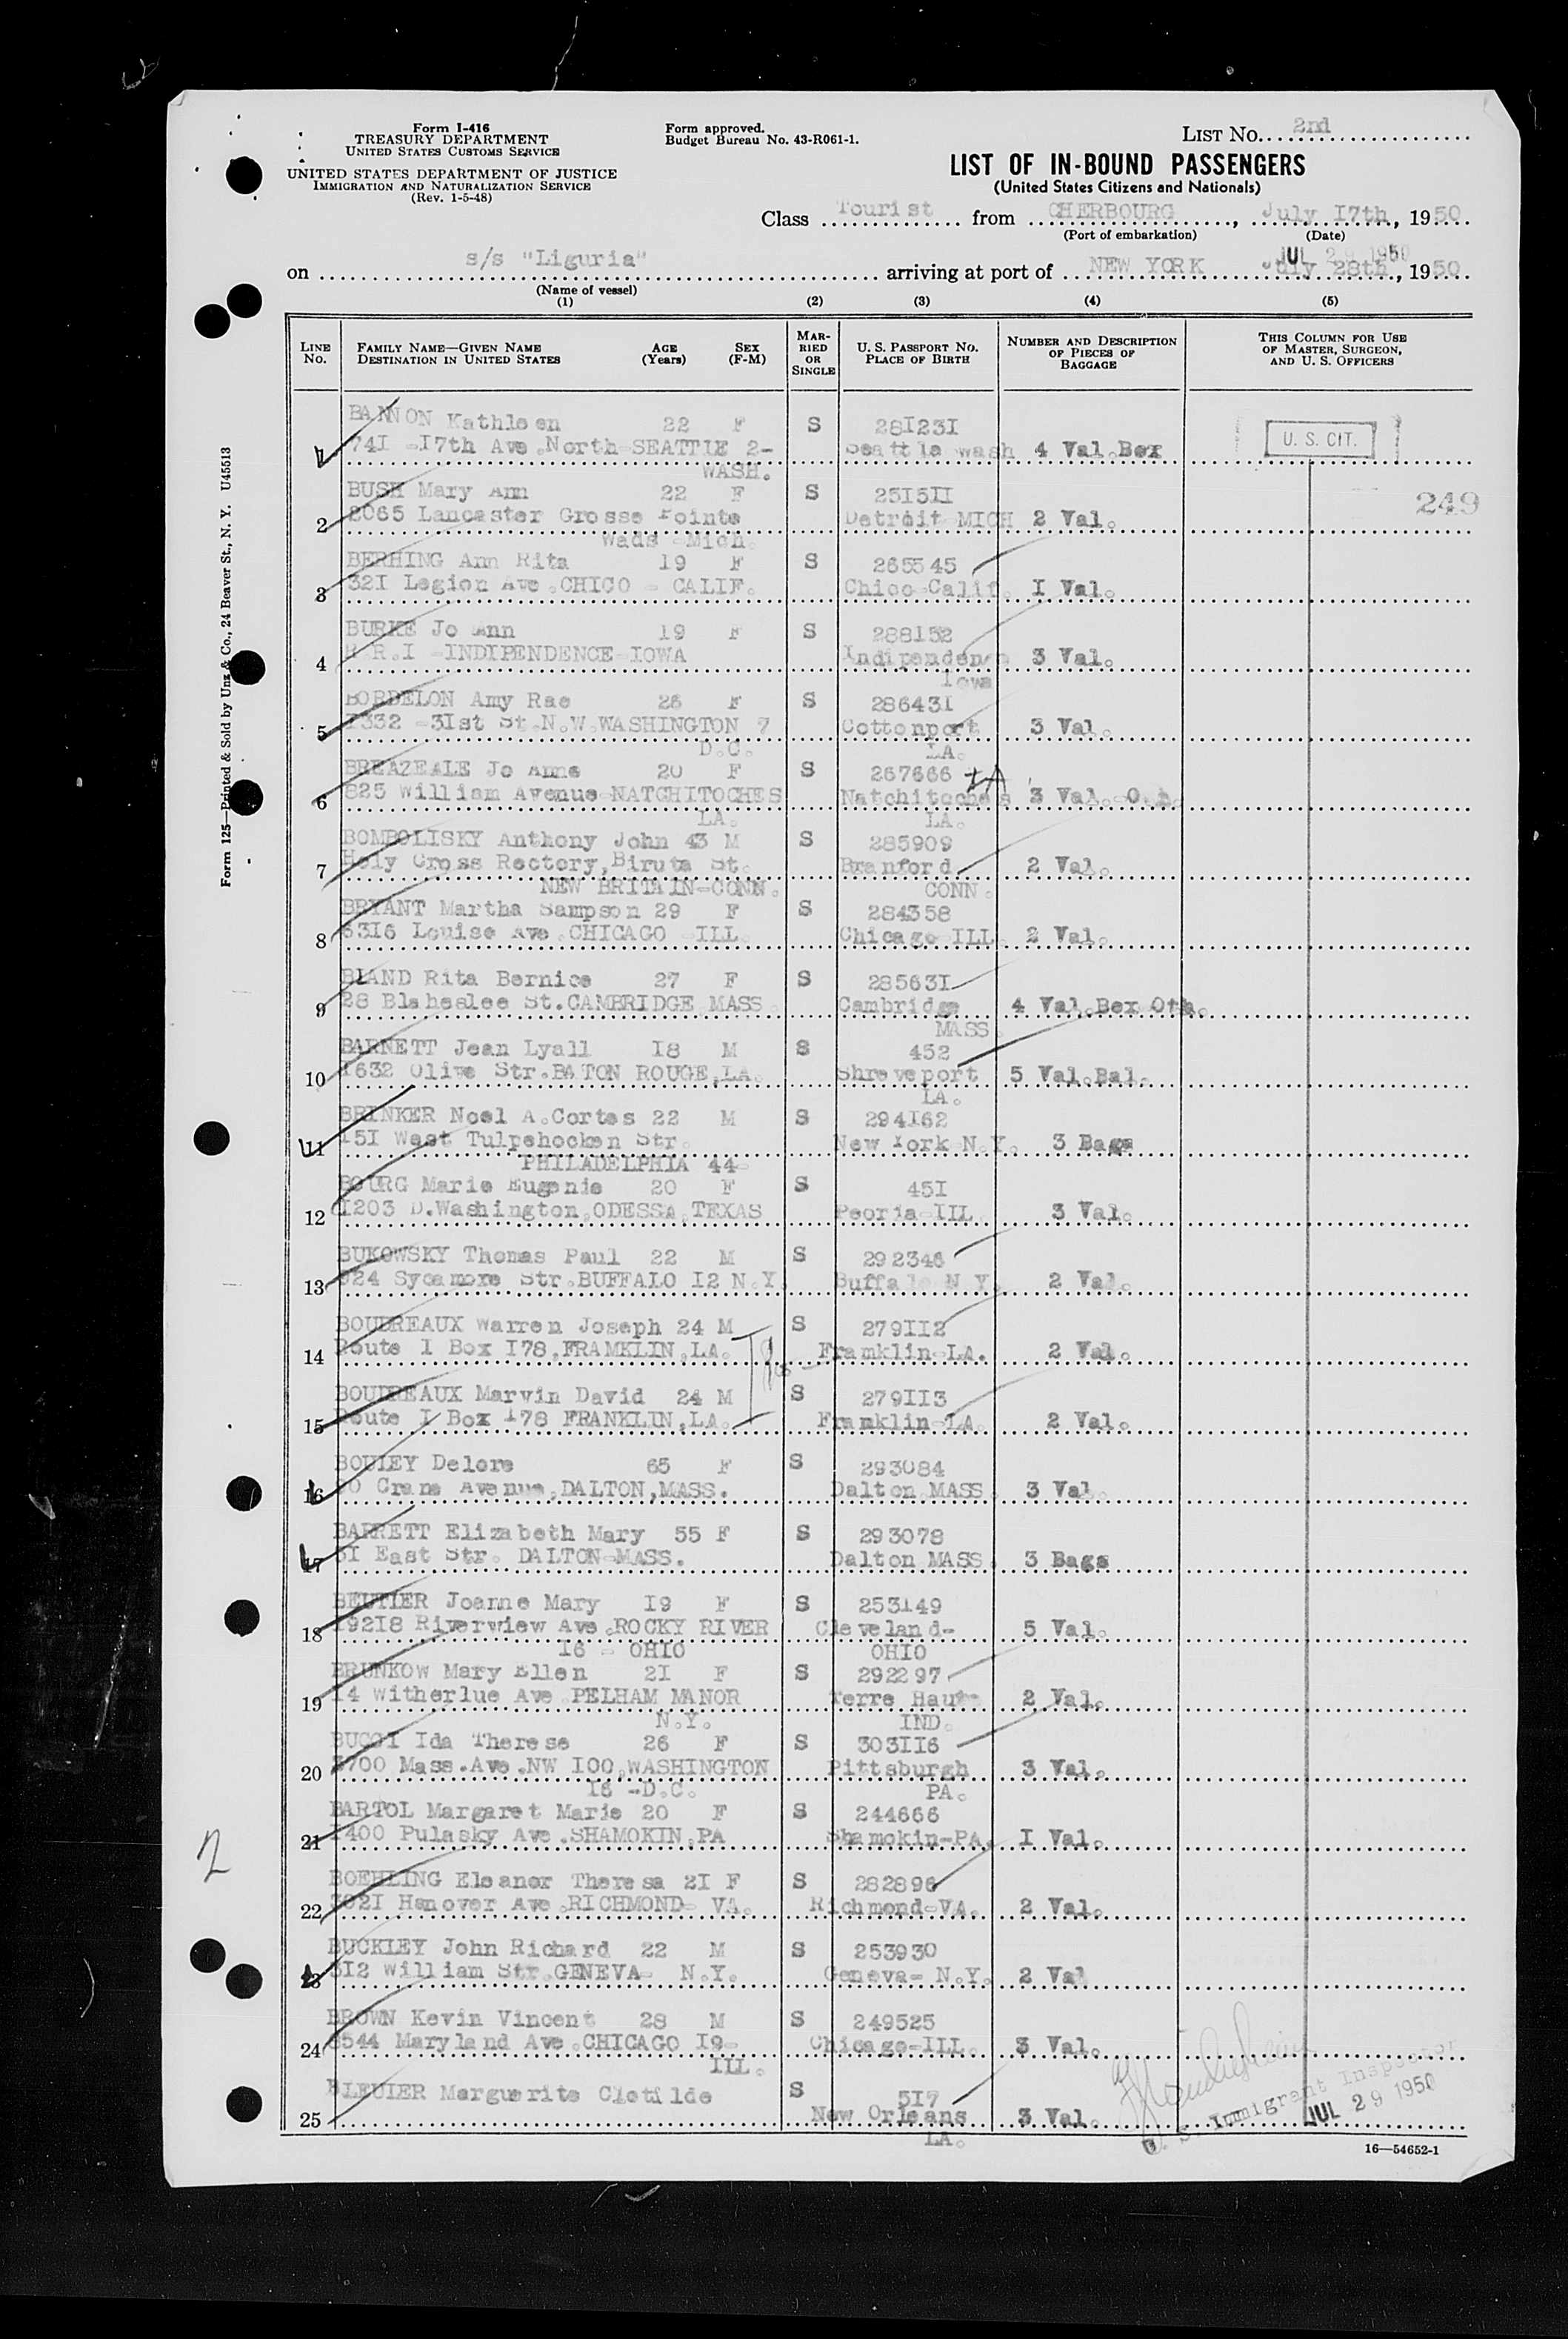 Form I-416
TREASURY DEPARTMENT
UNITED STATES CUSTOMS SERVICE
UNITED STATES DEPARTMENT OF JUSTICE
IMMIGRATION AND NATURALIZATION SERVICE
(Rev. 1-5-48)
Form approved.
Budget Bureau No. 43-R061-1.
LIST No. 2nd
LIST OF IN-BOUND PASSENGERS
(United States Citizens and Nationals)
Class Tourist from CHERBOURG, July I7th, 1950
(Port of embarkation) (Date)
JUL 29 1950
on s/s "Liguria" arriving at port of NEW YORK July 28th, 1950
(Name of vessel)
(1) (2) (3) (4) (5)
LINE No. FAMILY NAME—GIVEN NAME DESTINATION IN UNITED STATES AGE (Years) SEX (F-M) MARRIED OR SINGLE U. S. PASSPORT NO. PLACE OF BIRTH NUMBER AND DESCRIPTION OF PIECES OF BAGGAGE THIS COLUMN FOR USE OF MASTER, SURGEON, AND U. S. OFFICERS
BANNON Kathleen 22 F S 28I23I
1 74I -I7th Ave.North-SEATTIE 2- Seattle wash 4 Val.Box U. S. CIT.
WASH.
BUSH Mary Ann 22 F S 25I5II 249
2 2065 Lancaster Grosse Pointe Detroit MICH 2 Val.
Wads -Mich.
BERHING Ann Rita I9 F S 265545
3 32I Legion Ave.CHICO - CALIF. Chico-Calif. I Val.
BURKE Jo Ann I9 F S 288I52
4 R.R.I -INDIPENDENCE-IOWA Indipenden 3 Val.
Iowa
BORDELON Amy Rae 26 F S 28643I
5 I332 -3Ist St.N.W.WASHINGTON 7 Cottonport 3 Val.
D.C. LA.
BREAZEALE Jo Anne 20 F S 267666 LA
6 825 William Avenue-NATCHITOCHES Natchitoches 3 Val.-Oth.
LA. LA.
BOMBOLISKY Anthony John 43 M S 285909
7 Holy Cross Rectory,Biruta St. Branford 2 Val.
NEW BRITAIN-CONN. CONN.
BRYANT Martha Sampson 29 F S 284358
8 6316 Louise Ave.CHICAGO -ILL. Chicago-ILL. 2 Val.
BLAND Rita Bernice 27 F S 28563I
9 28 Blaheslee St.CAMBRIDGE MASS. Cambridge 4 Val.Box Oth.
MASS.
BARNETT Jean Lyall I8 M S 452
10 I632 Olive Str.BATON ROUGE,LA. Shreveport 5 Val.Bal.
LA.
BRINKER Noel A.Cortes 22 M S 294I62
11 I5I West Tulpehocken Str. New York-N.Y. 3 Bags
PHILADELPHIA 44-
BOURG Marie Eugenie 20 F S 45I
12 I203 D.Washington,ODESSA,TEXAS Peoria-ILL. 3 Val.
BUKOWSKY Thomas Paul 22 M S 292346
13 924 Sycamore Str.BUFFALO I2 N.Y. Buffalo N.Y. 2 Val.
BOUDREAUX Warren Joseph 24 M S 279II2
14 Route I Box I78,FRAMKLIN,LA. Framklin-LA. 2 Val.
BOUDREAUX Marvin David 24 M S 279II3
15 Route I Box I78 FRANKLIN,LA. Franklin-LA. 2 Val.
BOULEY Delore 65 F S 293084
16 0 Crane Avenue,DALTON,MASS. Dalton MASS. 3 Val.
BARRETT Elizabeth Mary 55 F S 293078
17 3I East Str. DALTON-MASS. Dalton MASS. 3 Bags
BEUTIER Joanne Mary I9 F S 253I49
18 I92I8 Riverview Ave.ROCKY RIVER Cleveland- 5 Val.
I6 - OHIO OHIO
BRUNKOW Mary Ellen 2I F S 292297
19 I4 Witherlue Ave.PELHAM MANOR Terre Haute 2 Val.
N.Y. IND.
BUCCI Ida Therese 26 F S 303II6
20 3700 Mass.Ave.NW I00,WASHINGTON Pittsburgh 3 Val.
I6 -D.C. PA.
BARTOL Margaret Marie 20 F S 244666
21 I400 Pulasky Ave.SHAMOKIN,PA Shamokin-PA. I Val.
BOEHLING Eleanor Theresa 2I F S 282896
22 302I Hanover Ave.RICHMOND- VA. Richmond-VA. 2 Val.
BUCKLEY John Richard 22 M S 253930
23 3I2 William Str.GENEVA- N.Y. Geneva- N.Y. 2 Val
BROWN Kevin Vincent 28 M S 249525
24 8544 Maryland Ave.CHICAGO I9- Chicago-ILL. 3 Val.
ILL.
BLEUIER Marguerite Clotilde S 5I7
25 New Orleans 3 Val.
LA.
U. S. Immigrant Inspector
JUL 29 1950
16—54652-1
Form 125—Printed & Sold by Unz & Co., 24 Beaver St., N. Y. U45513
2